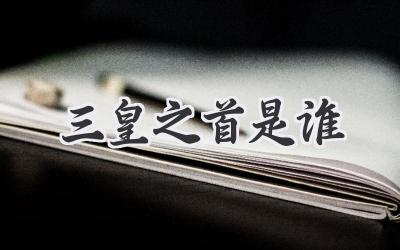 三皇之首是谁